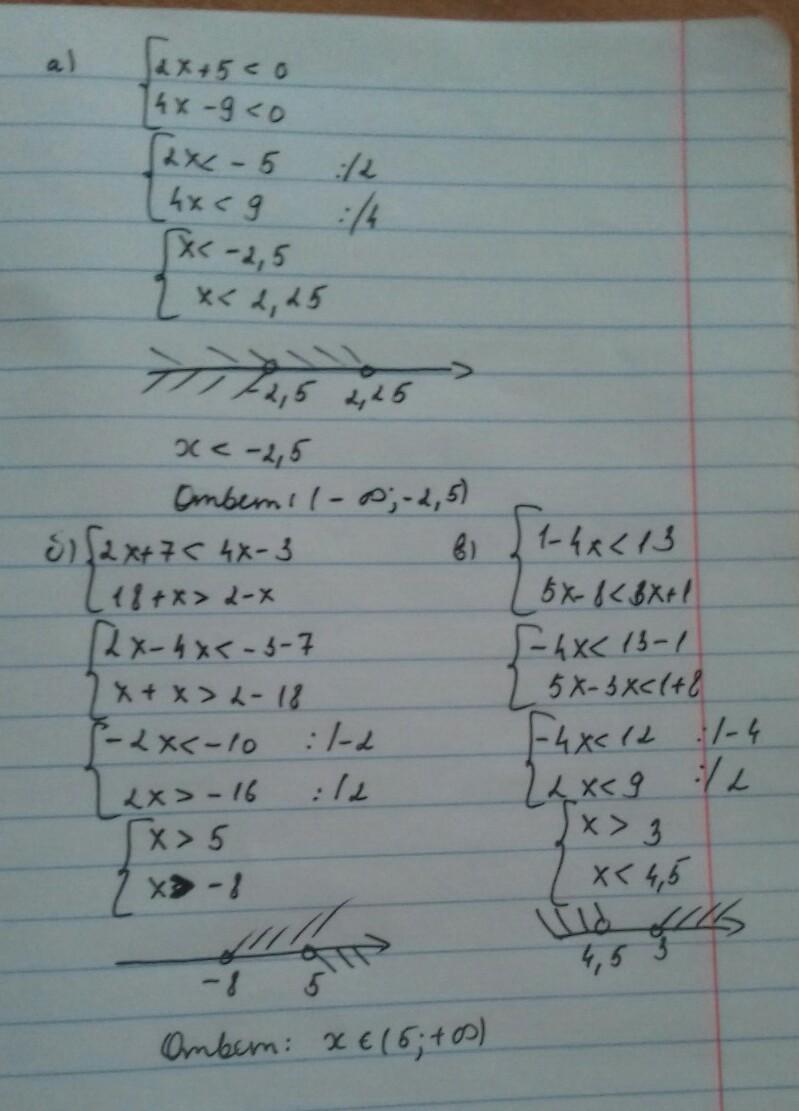 а) {2x+5<0
{4x-9<0
{2x<-5 :/2
{4x<9 :/4
{x<-2,5
{x<2,25
-2,5 2,25
x<-2,5
Ответ: (-∞;-2,5)
б) {2x+7<4x-3
{18+x>2-x
{2x-4x<-3-7
{x+x>2-18
{-2x<-10 :/-2
{2x>-16 :/2
{x>5
{x>-8
-8 5
Ответ: x∈(5;+∞)
в) {1-4x<13
{5x-8<3x+1
{-4x<13-1
{5x-3x<1+8
{-4x<12 :/-4
{2x<9 :/2
{x>3
{x<4,5
4,5 3